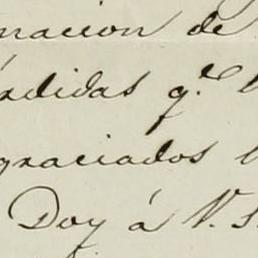 nacion de
rdidas q.e
graciados
Doy á V. S.